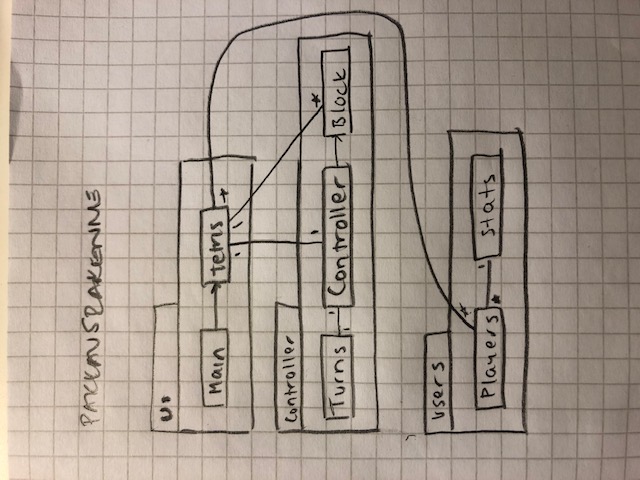 PAKKAUSRAKENNE
UI
Main
Tetris
*
1
1
Controller
1
*
Turns
1
1
Controller
Block
Users
*
Players
*
1
Stats